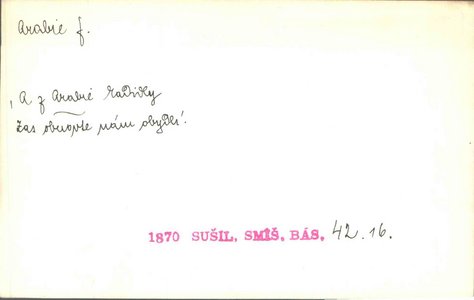 Arabie f.
‚A z Arabie kadidky
zas obuovte nám obydlí‘.
1870 SUŠIL. SMÍŠ. BÁS. 42.16.